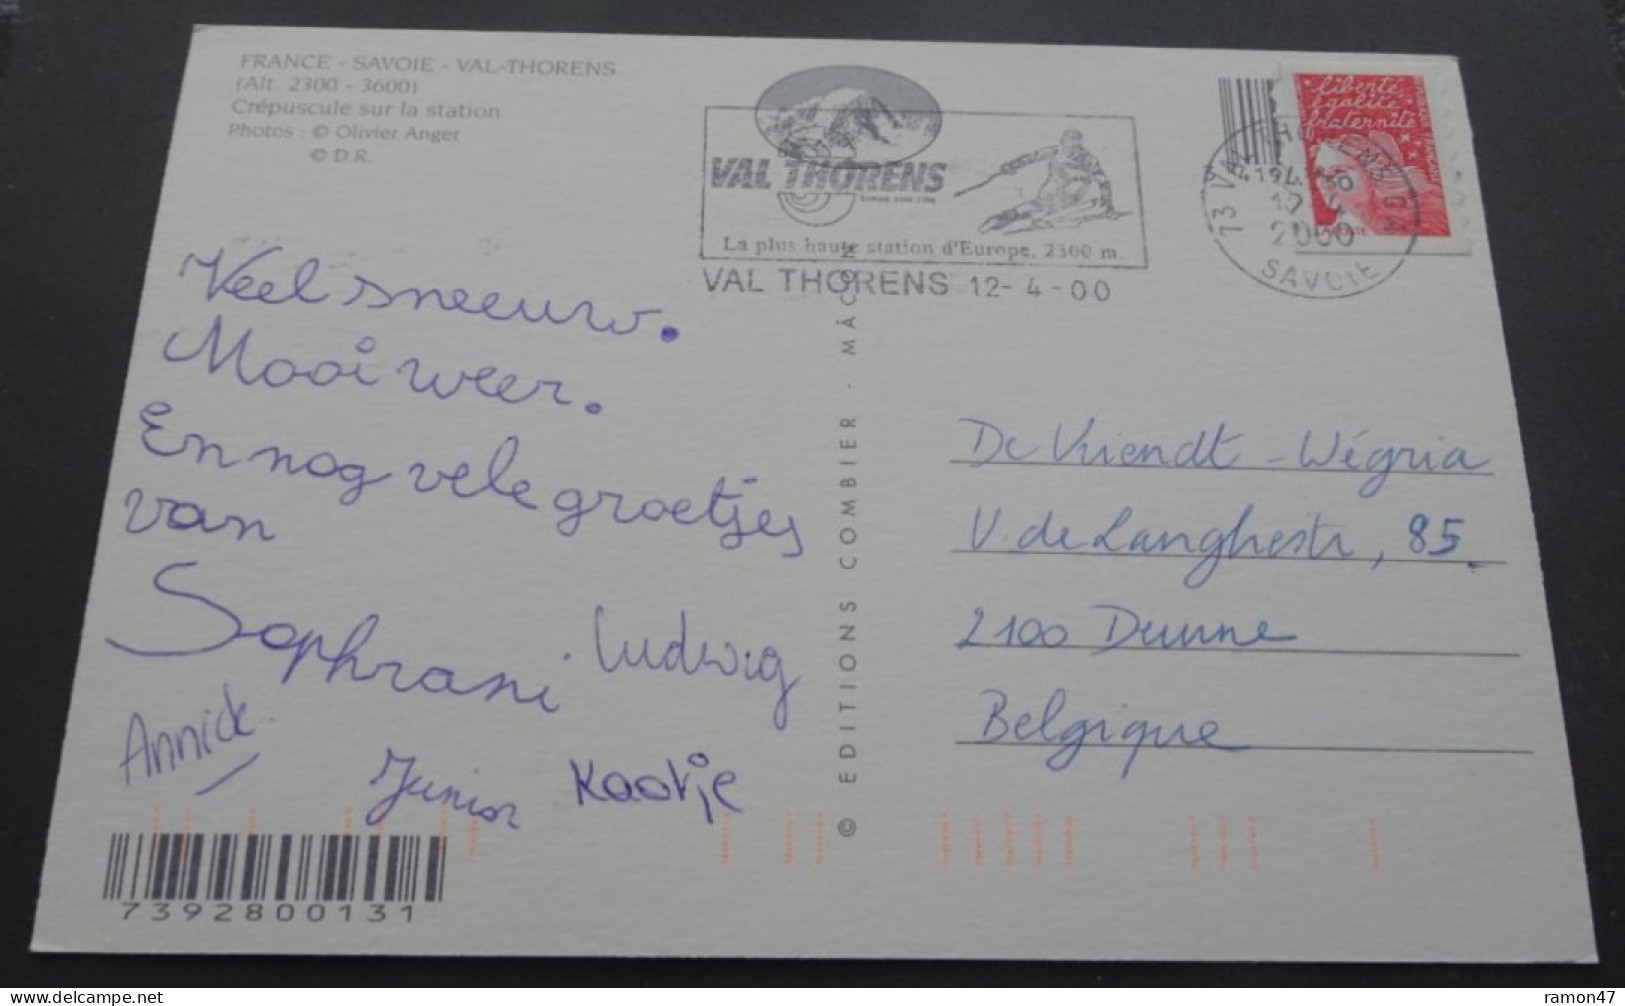 FRANCE - SAVOIE - VAL-THORENS
(Alt. 2300 - 3600)
Crépuscule sur la station
Photos : © Olivier Anger
© D.R.
VAL THORENS
La plus haute station d'Europe, 2300 m.
VAL THORENS 12-4-00
liberté
égalité
fraternité
73 VAL THORENS
2000
SAVOIE
Veel sneeuw.
Mooi weer.
En nog vele groetjes
van
Ludwig
Annick
Junior Kaatje
© EDITIONS COMBIER - MÂCON
De Vriendt - Wégria
V. de Langhestr, 85.
2100 Deurne
Belgique
7392800131
ramon47